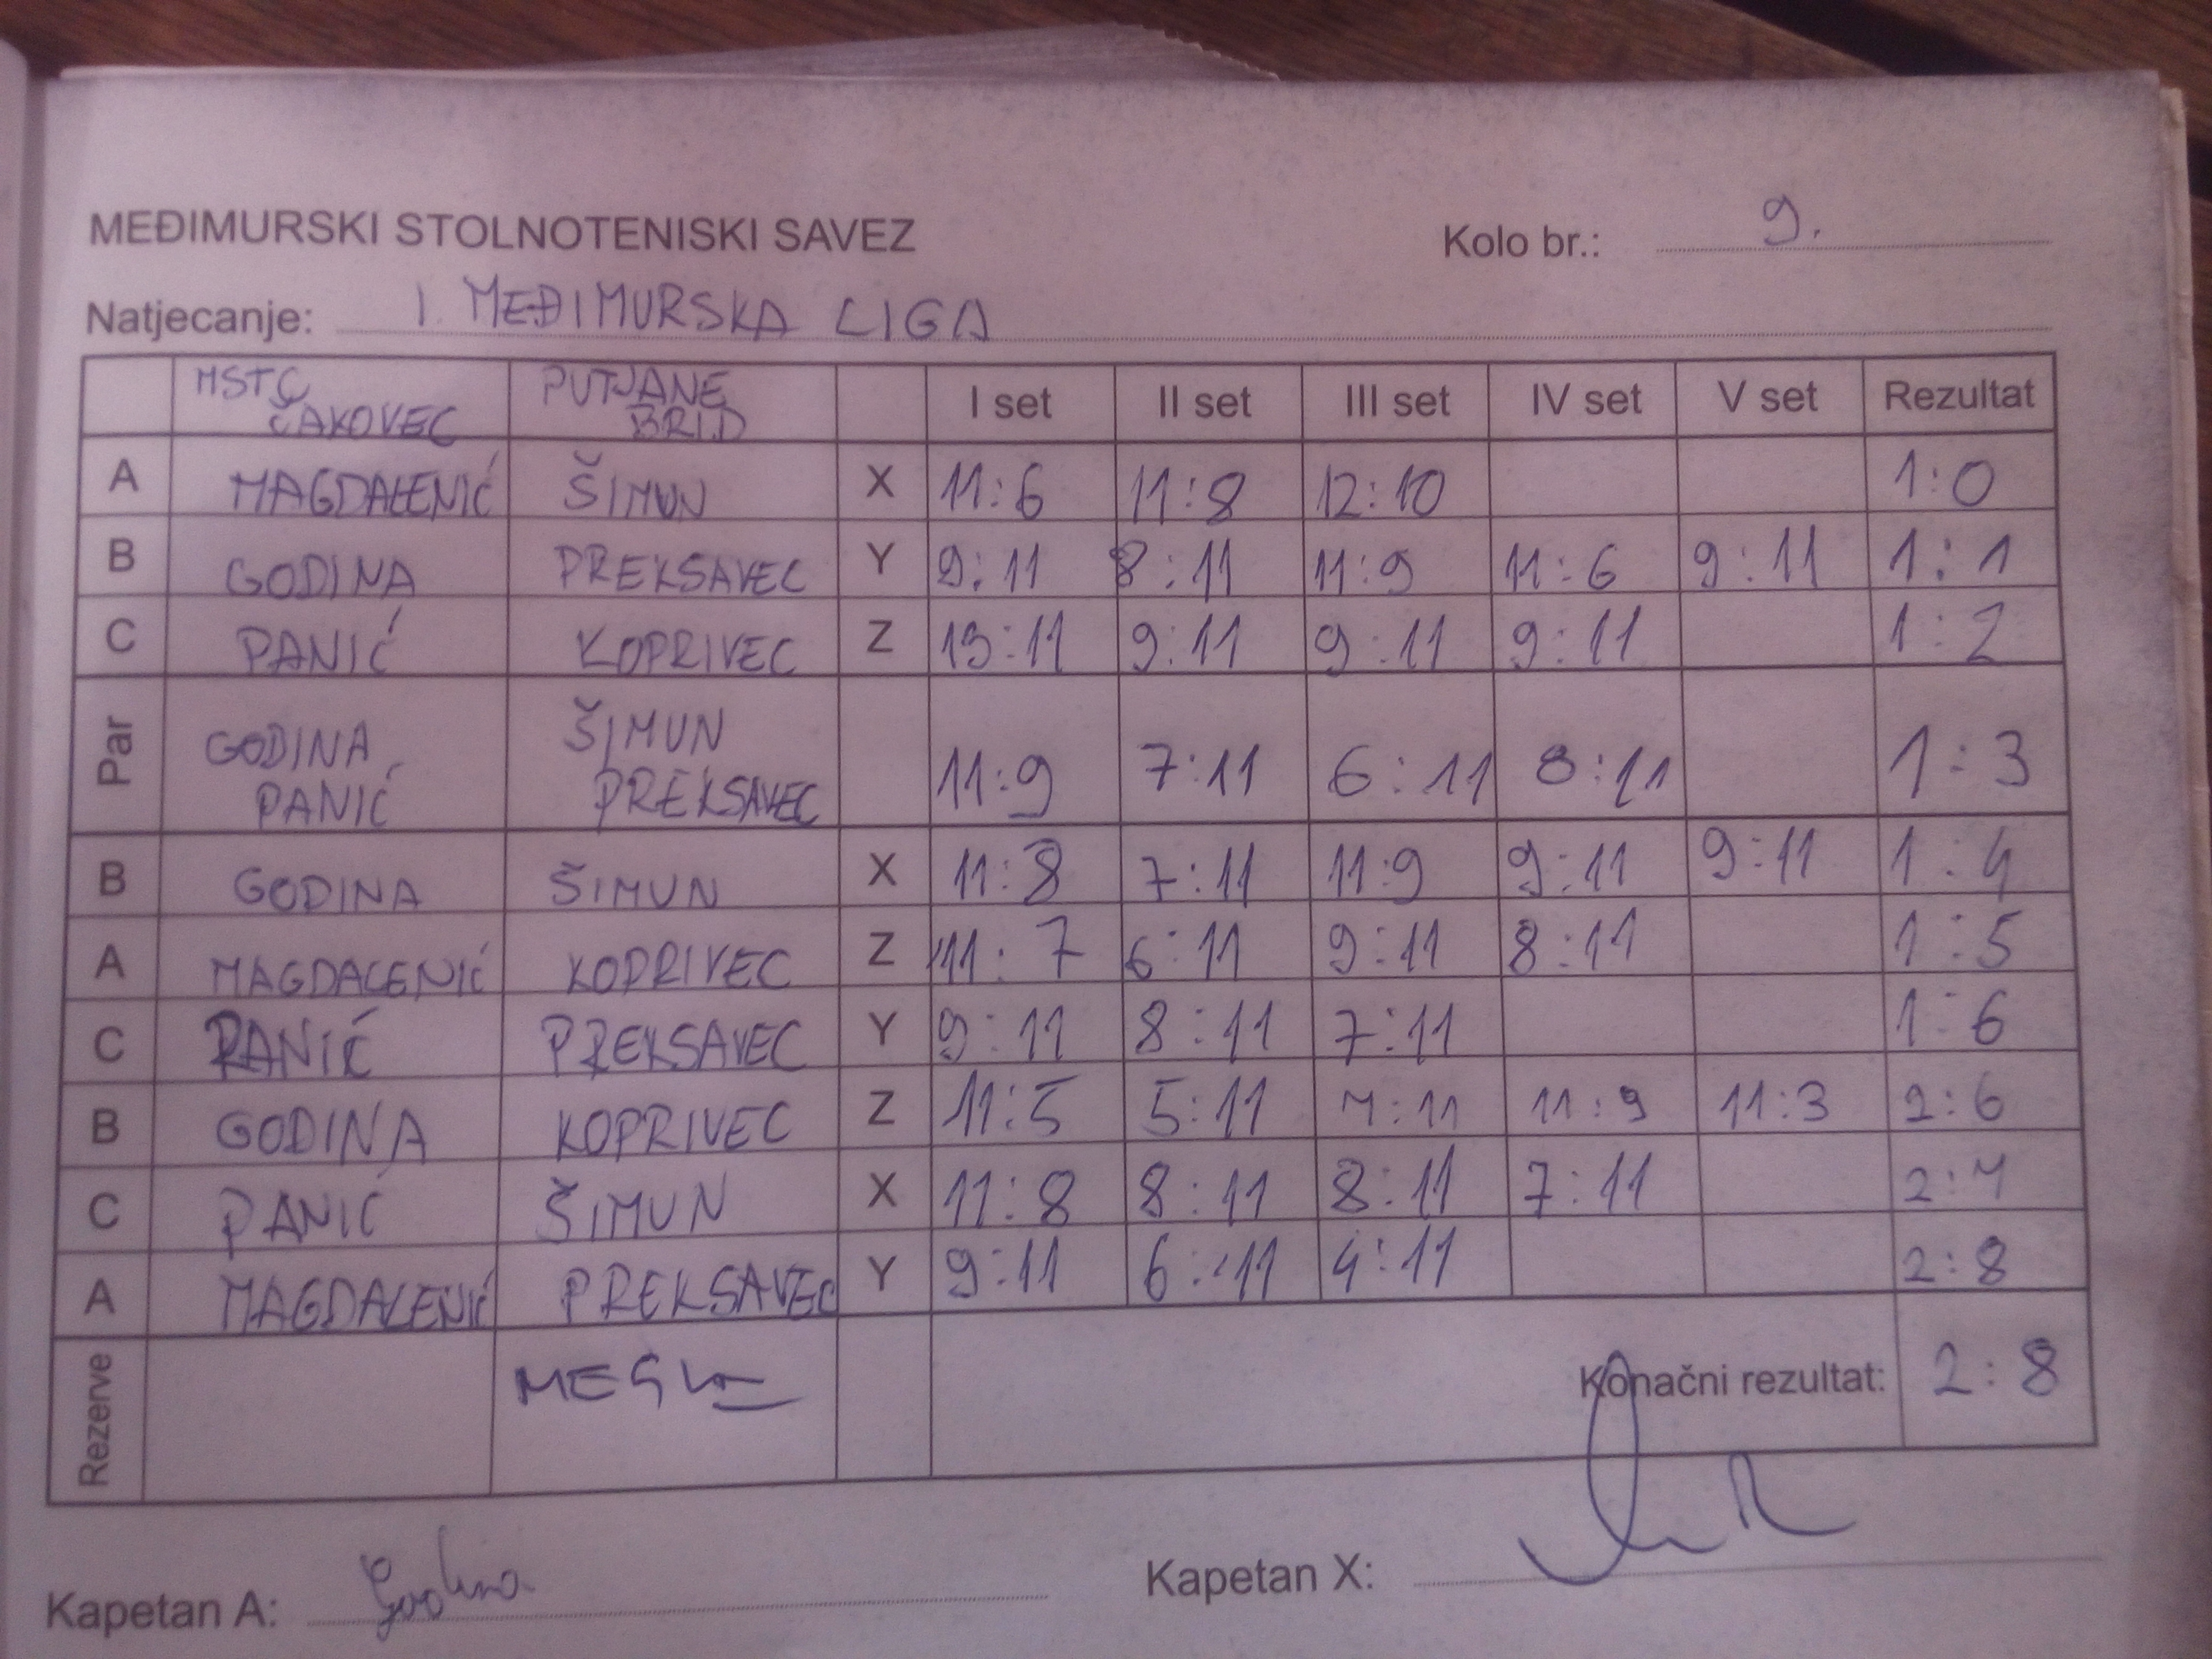 MEĐIMURSKI STOLNOTENISKI SAVEZ Kolo br.: 9.
Natjecanje: I. MEĐIMURSKA LIGA
MSTC ČAKOVEC PUTJANE BRID I set II set III set IV set V set Rezultat
A MAGDALENIĆ ŠIMUN X 11:6 11:8 12:10 1:0
B GODINA PREKSAVEC Y 9:11 8:11 11:9 11:6 9:11 1:1
C PANIĆ KOPRIVEC Z 13:11 9:11 9:11 9:11 1:2
Par GODINA PANIĆ ŠIMUN PREKSAVEC 11:9 7:11 6:11 8:11 1:3
B GODINA ŠIMUN X 11:8 7:11 11:9 9:11 9:11 1:4
A MAGDALENIĆ KOPRIVEC Z 11:7 6:11 9:11 8:11 1:5
C PANIĆ PREKSAVEC Y 9:11 8:11 7:11 1:6
B GODINA KOPRIVEC Z 11:5 5:11 7:11 11:9 11:3 2:6
C PANIĆ ŠIMUN X 11:8 8:11 8:11 7:11 2:7
A MAGDALENIĆ PREKSAVEC Y 9:11 6:11 4:11 2:8
Rezerve Konačni rezultat: 2:8
Kapetan A: Godina Kapetan X: